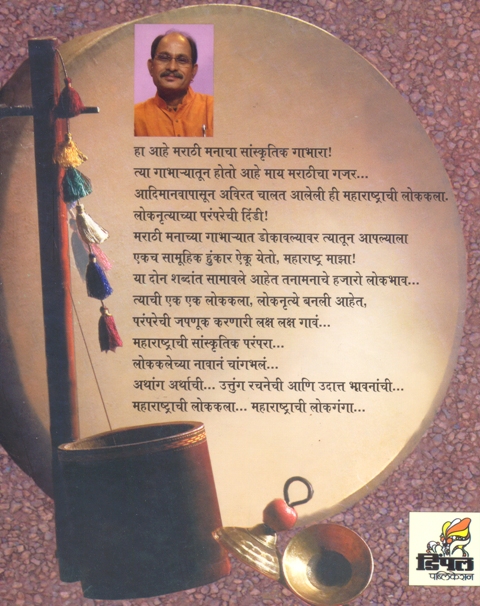 हा आहे मराठी मनाचा सांस्कृतिक गाभारा!
त्या गाभाऱ्यातून होतो आहे माय मराठीचा गजर...
आदिमानवापासून अविरत चालत आलेली ही महाराष्ट्राची लोककला.
लोकनृत्याच्या परंपरेची दिंडी!
मराठी मनाच्या गाभाऱ्यात डोकावल्यावर त्यातून आपल्याला
एकच सामूहिक हुंकार ऐकू येतो, महाराष्ट्र माझा!
या दोन शब्दांत सामावले आहेत तनामनाचे हजारो लोकभाव...
त्याची एक एक लोककला, लोकनृत्ये बनली आहेत,
परंपरेची जपणूक करणारी लक्ष लक्ष गावं...
महाराष्ट्राची सांस्कृतिक परंपरा...
लोककलेच्या नावानं चांगभलं...
अथांग अर्थाची... उत्तुंग रचनेची आणि उदात्त भावनांची...
महाराष्ट्राची लोककला... महाराष्ट्राची लोकगंगा...
डिंपल
पब्लिकेशन